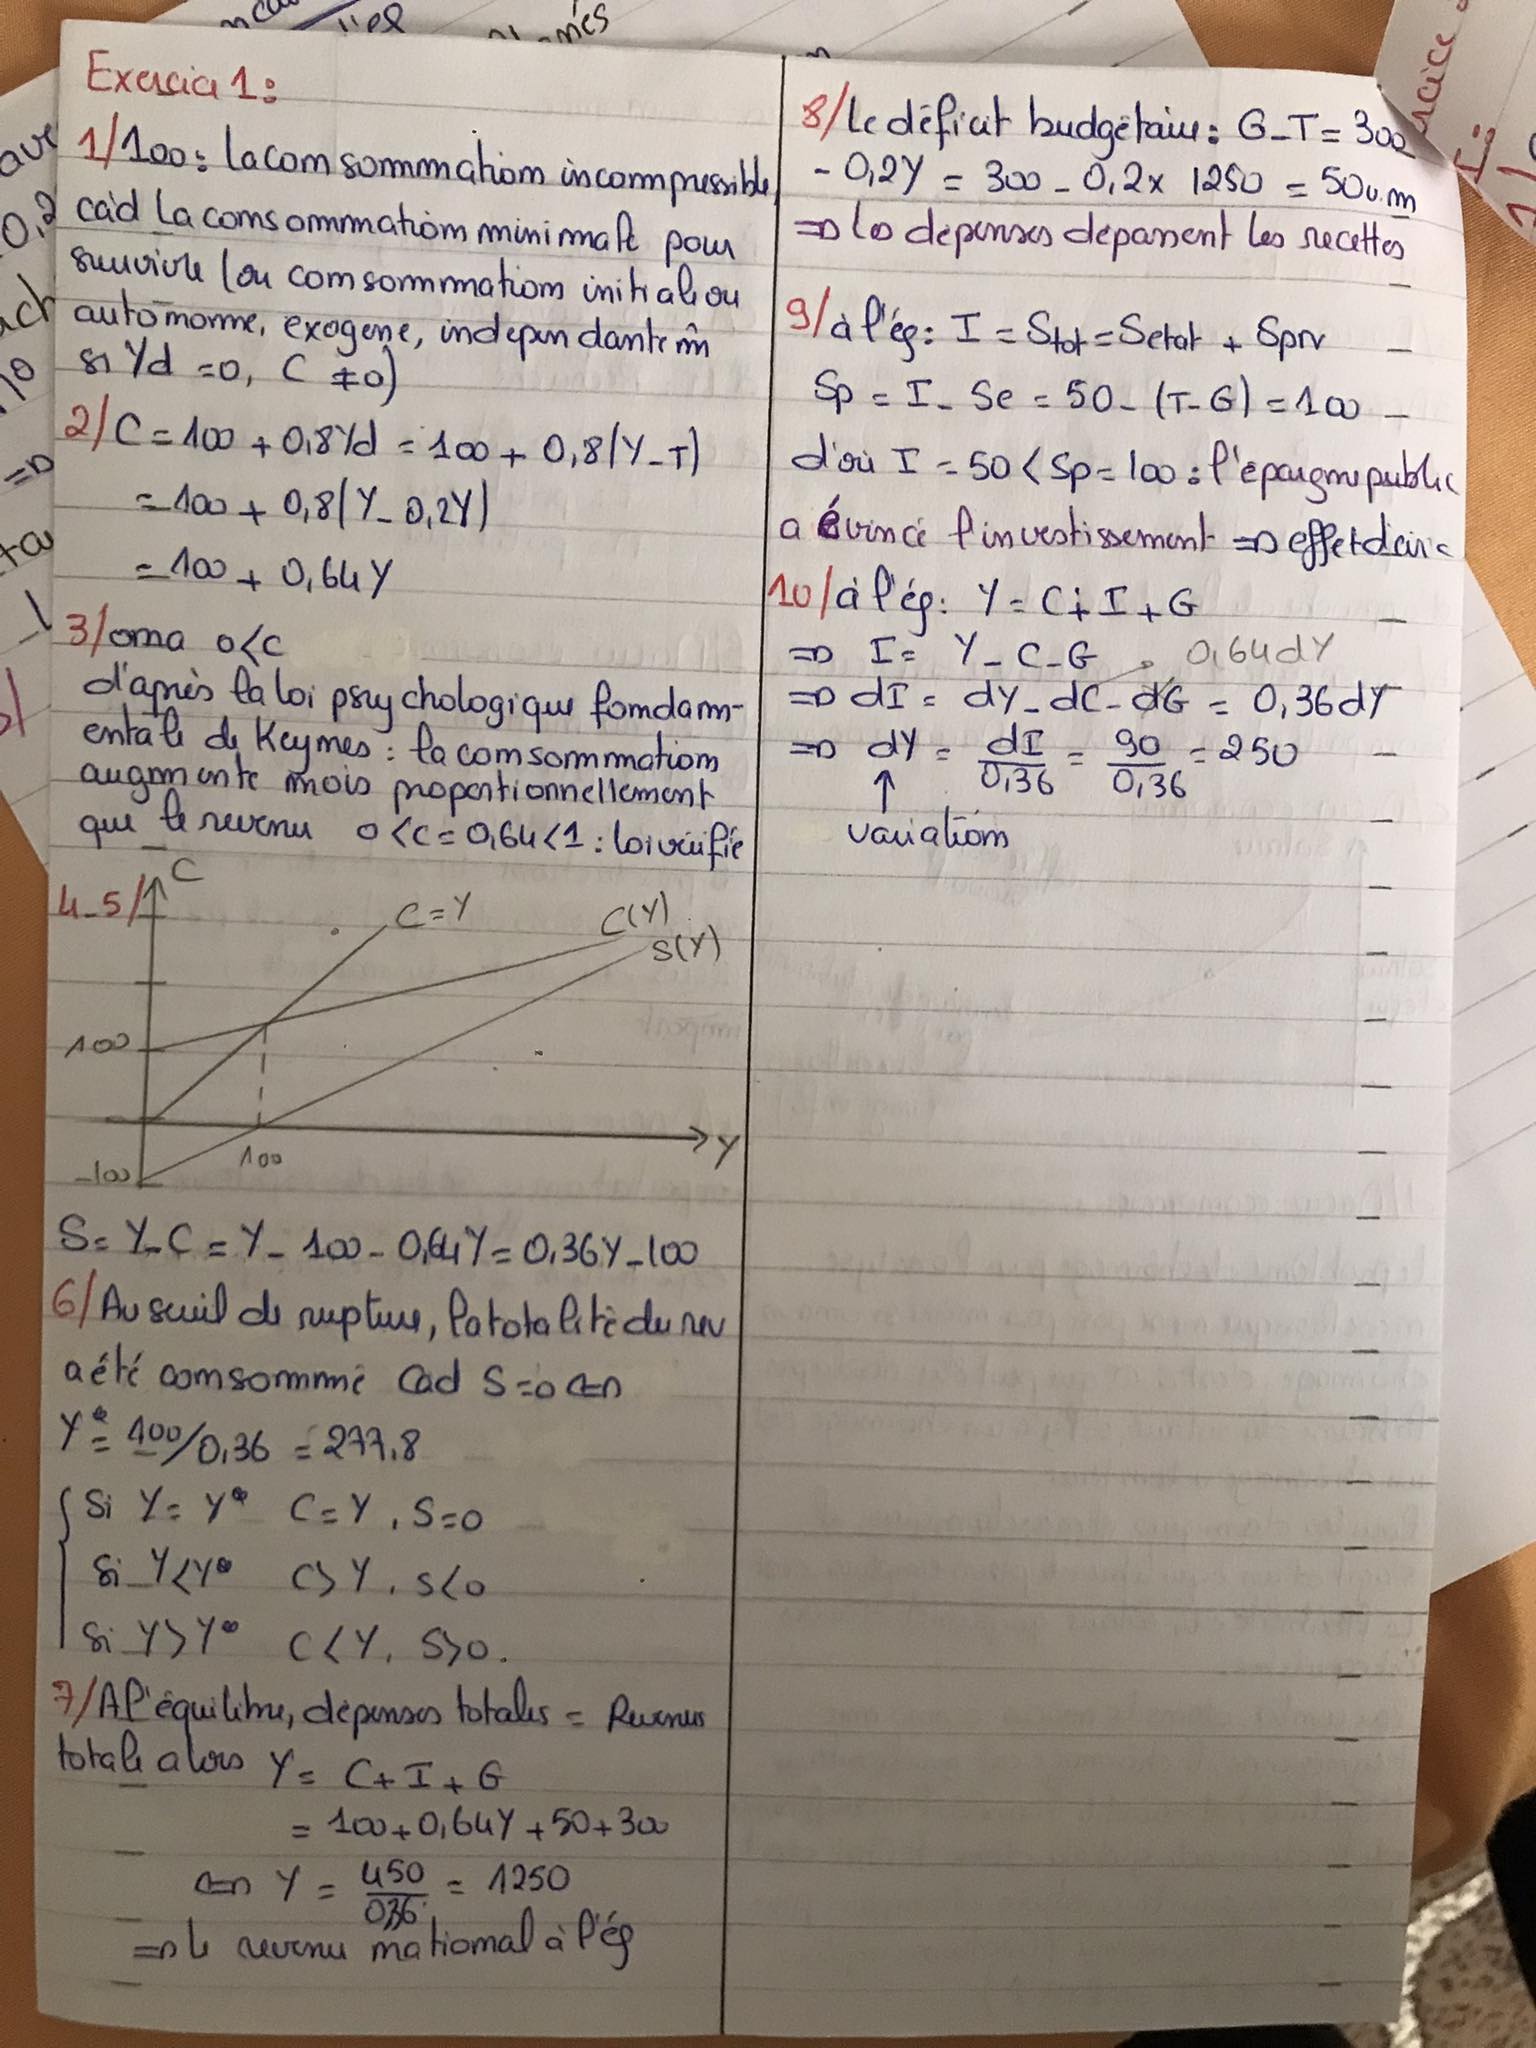 Exercice 1:
1/ 100: la consommation incompressible,
càd la consommation minimale pour
survivre (ou consommation initiale ou
autonome, exogène, indépendante m̂
si Yd = 0, C ≠ 0)
2/ C = 100 + 0,8Yd = 100 + 0,8(Y - T)
= 100 + 0,8(Y - 0,2Y)
= 100 + 0,64Y
3/ on a 0<c
d'après la loi psychologique fondam-
entale de Keynes: la consommation
augmente mois proportionnellement
que le revenu 0<c=0,64<1: loi vérifie
4-5/
C
C=Y
C(Y)
S(Y)
100
100
Y
-100
S = Y - C = Y - 100 - 0,64Y = 0,36Y - 100
6/ Au seuil de rupture, la totalité du rev
a été consommé Cad S=0 ⇔
Y* = 100/0,36 = 277,8
Si Y = Y* C = Y, S=0
Si Y<Y* C>Y, S<0
Si Y>Y* C<Y, S>0.
7/ A l'équilibre, dépenses totales = Revenus
totale alors Y = C + I + G
= 100 + 0,64Y + 50 + 300
⇔ Y = 450/0,36 = 1250
⇒ le revenu national à l'ég
8/ Le déficit budgétaire: G - T = 300
- 0,2Y = 300 - 0,2 x 1250 = 50 u.m
⇒ les dépenses dépassent les recettes
9/ à l'ég: I = Stot = Setat + Sprv
Sp = I - Se = 50 - (T - G) = 100
d'où I = 50 < Sp = 100: l'épargne public
a évincé l'investissement ⇒
10/ à l'ég: Y = C + I + G
⇒ I = Y - C - G
0,64dY
⇒ dI = dY - dC - dG = 0,36dY
⇒ dY = dI/0,36 = 90/0,36 = 250
↑
variation